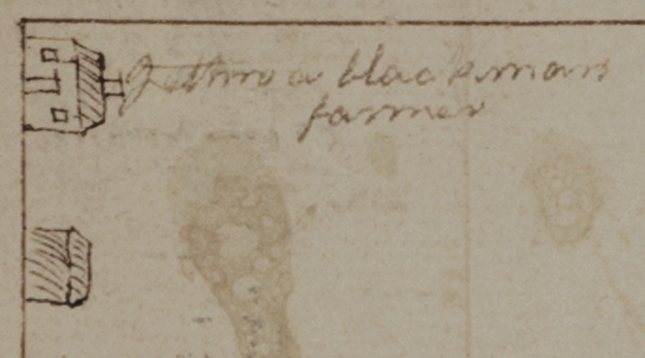 Jethro a blackman
farmer